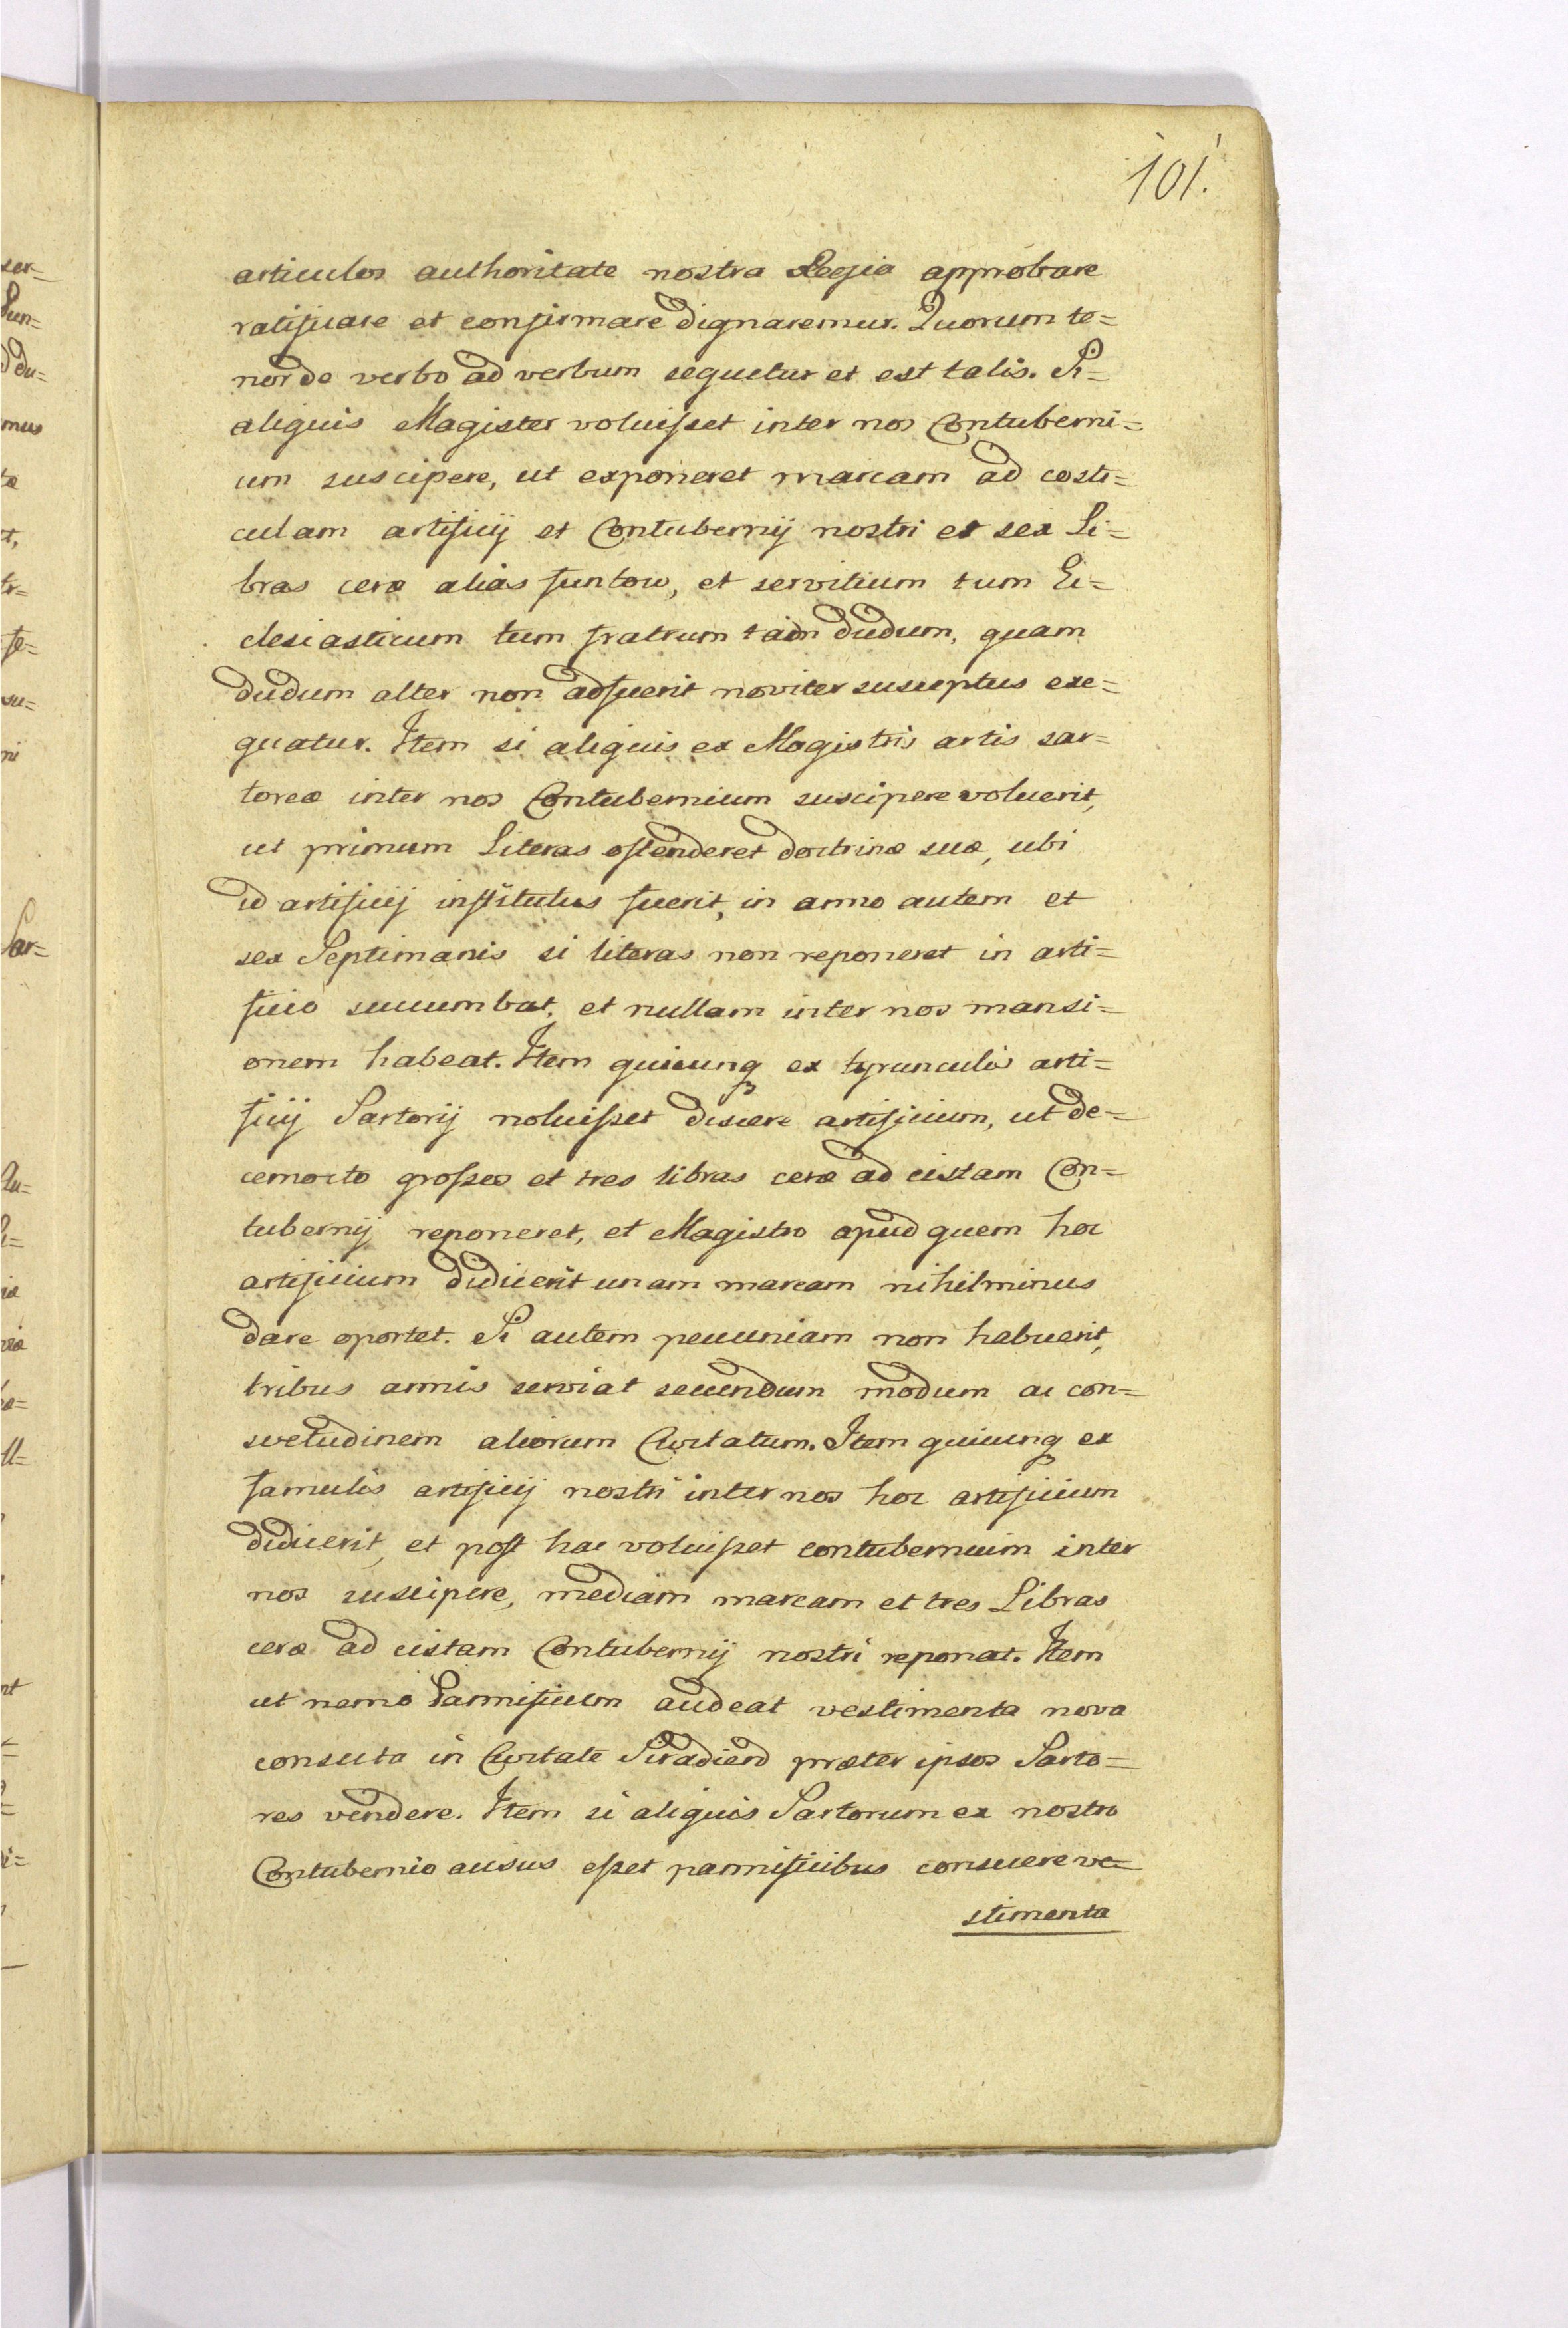 101.
articulos authoritate nostra Regia approbare
ratificare et confirmare dignaremur. Quorum te=
nor de verbo ad verbum sequetur et est talis. Si=
aliquis Magister voluisset inter nos Contuberni=
um suscipere, ut exponeret marcam ad cisti=
culam artificij et Contubernij nostri et sex Li=
bras ceræ alias funtow, et servitium tum Ec=
clesiasticum tum fratrum tam dudum, quam
dudum alter non adfuerit noviter susceptus exe=
quatur. Item si aliquis ex Magistris artis sar=
toreæ inter nos Contubernium suscipere voluerit,
ut primum Literas ostenderet doctrinæ suæ, ubi
id artificij institutus fuerit, in anno autem et
sex Septimanis si literas non reponeret in arti=
ficio succumbat, et nullam inter nos mansi=
onem habeat. Item quicunq ex tyrunculis arti=
ficij Sartorij noluisset discere artificium, ut de=
cemocto grosses et tres libras ceræ ad cistam Con=
tubernij reponeret, et Magistro apud quem hoc
artificium didicerit unam marcam nihilminus
dare oportet. Si autem pecuniam non habuerit,
tribus annis serviat secundum modum ac con=
svetudinem aliorum Civitatum. Item quicunq ex
famulis artificij nostri inter nos hoc artificium
didicerit, et post hac voluisset contubernium inter
nos suscipere, mediam marcam et tres Libras
ceræ ad cistam Contubernij nostri reponat. Item
ut nemo Pannificum audeat vestimenta nova
consuta in Civitate Siradiend præter ipsos Sarto=
res vendere. Item si aliquis Sartorum ex nostro
Contubernio ausus esset pannificibus consuere ve=
stimenta